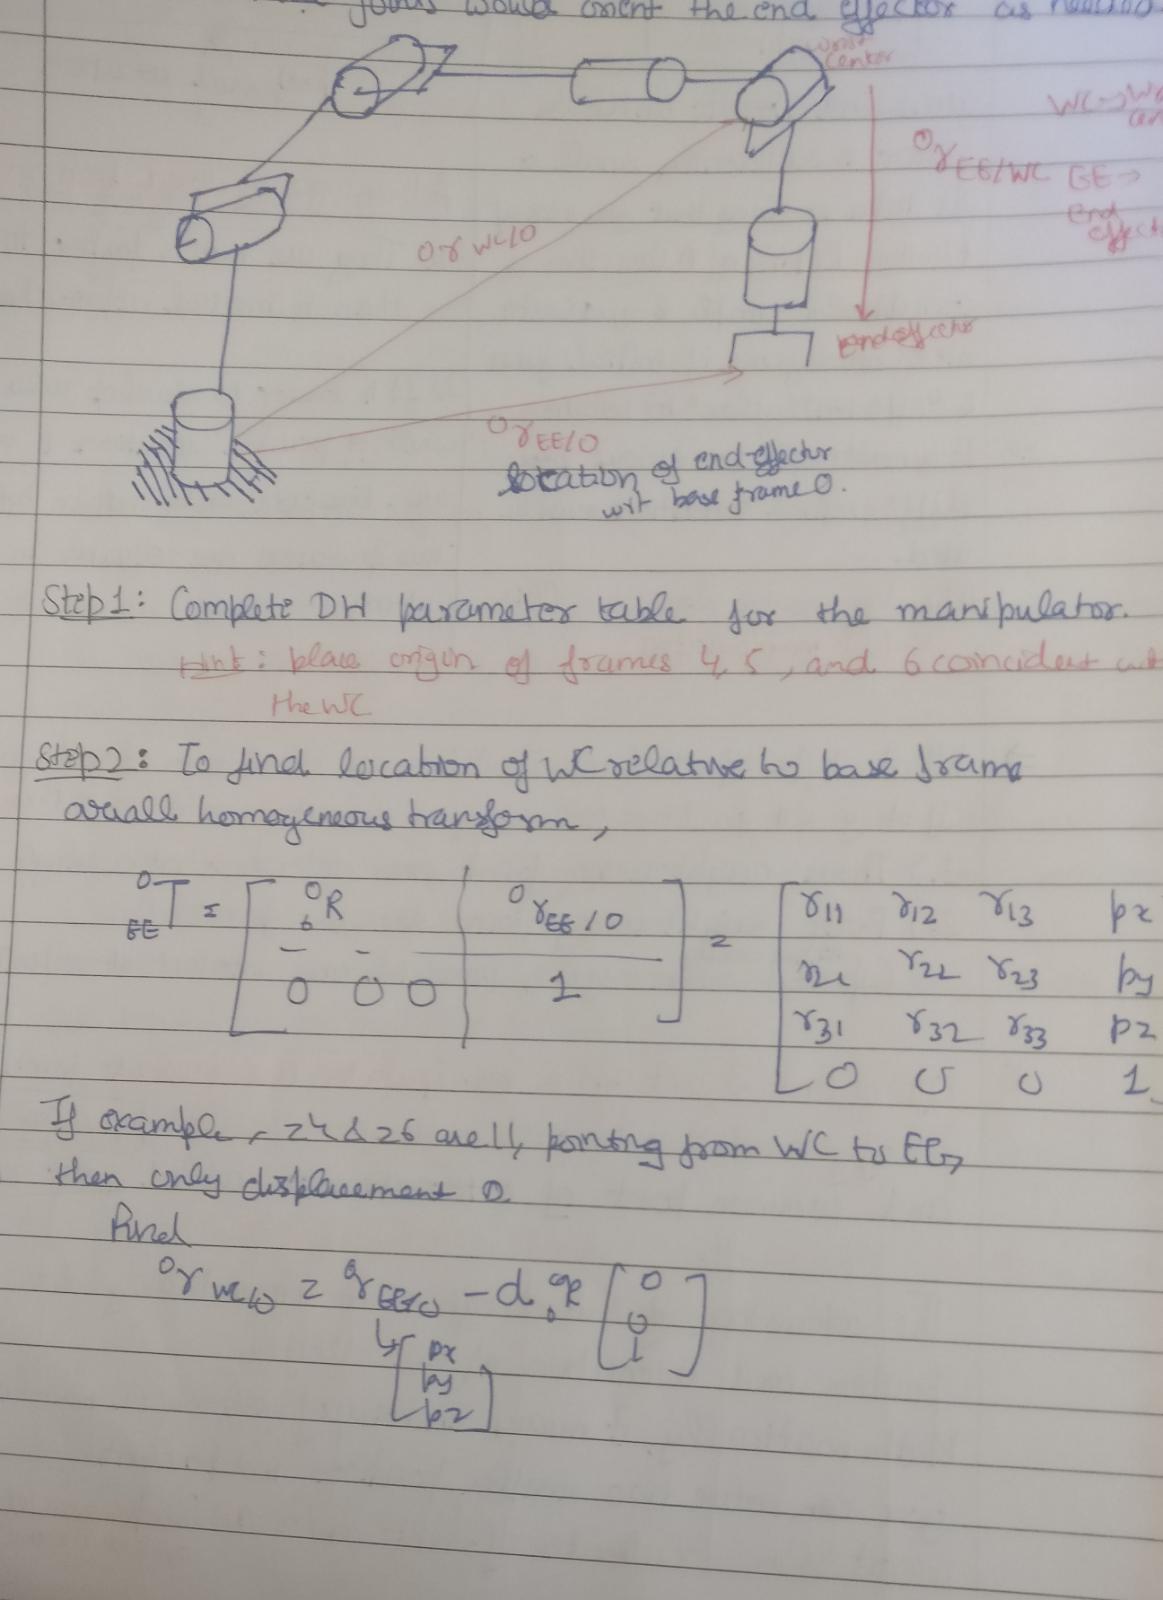 joints would orient the end effector as needed
wrist
center
WC →
⁰r EE/WC EE →
end
effect
⁰r WC/O
end effector
⁰r EE/O
location of end-effector
wrt base frame 0.
Step1: Complete DH parameter table for the manipulator.
Hint: place origin of frames 4, 5, and 6 coincident
the WC
Step2: To find location of WC relative to base frame
homogeneous transform,
⁰T EE = [ ⁰₆R | ⁰r EE/O ] = [ r11 r12 r13 px
r22 r23 py
0 0 0 1 r31 r32 r33 pz
0 0 0 1
If example, z4 & z6 are ||, pointing from WC to EE,
then only displacement
Find
⁰r WC/O = ⁰r EE/O - d. ⁰₆R [ 0
0
1 ]
↳ [ px
py
pz ]